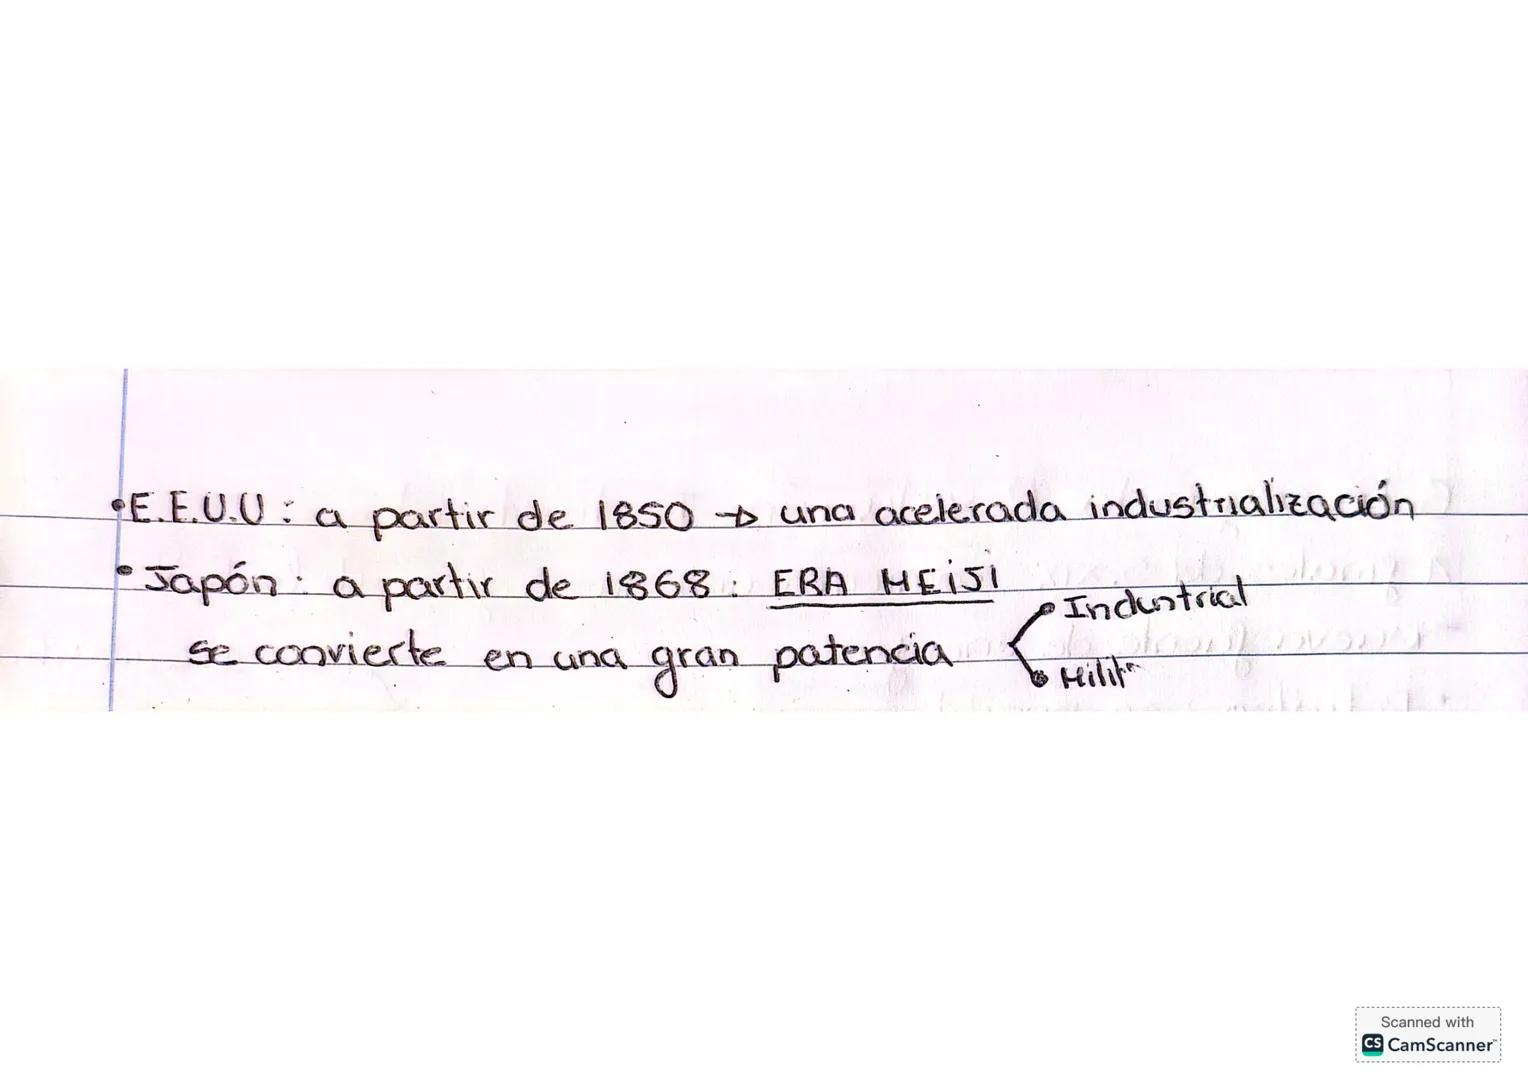 •E.E.U.U: a partir de 1850 → una acelerada industrialización
•Japón: a partir de 1868: ERA MEIJI
• Industrial
se convierte en una gran potencia
• Milit
Scanned with
CS CamScanner